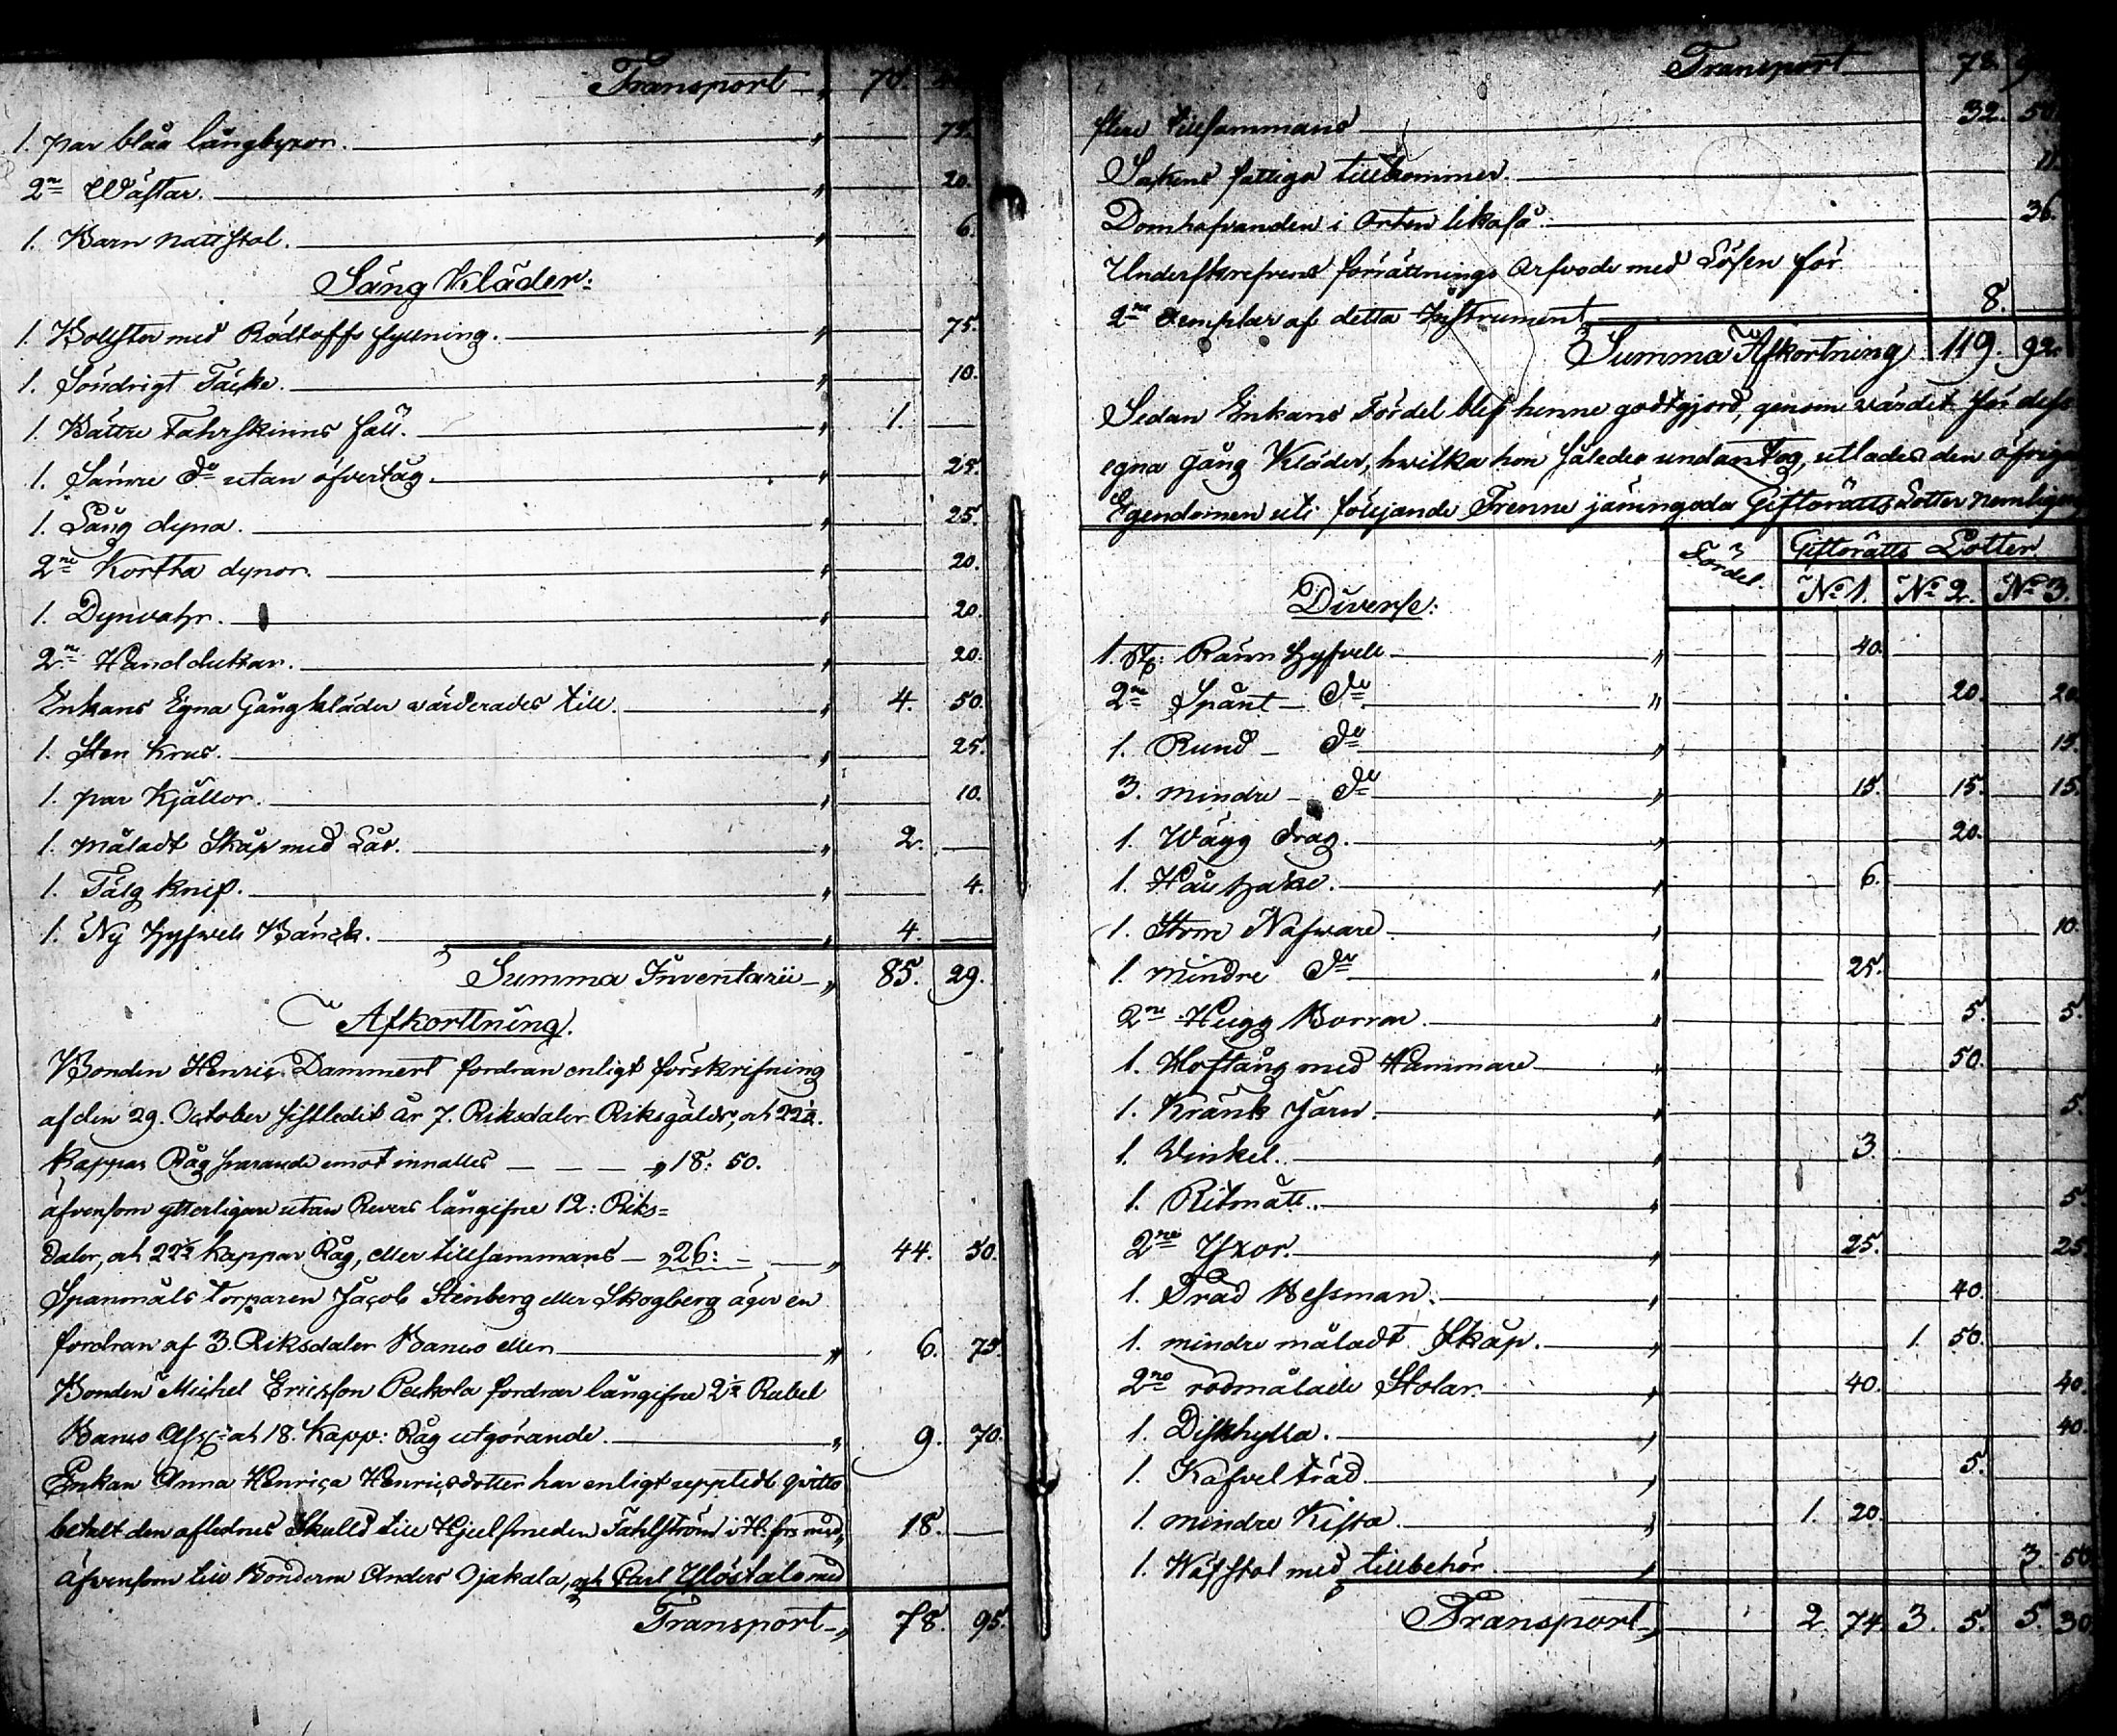 Transport „ 70.
1. par blåa långbyxor. „ 75.
2ne Wästar. „ 20.
1. Barn nattstol. „ 6.
Säng Kläder:
1. Bolster med Rödtoffs fyllning. „ 75.
1. Söndrigt Täcke. „ 10.
1. Bättre Fahrskinns fäll. „ 1. —
1. Sämre do utan öfvertåg. „ 25.
1. Lång dyna. „ 25.
2ne Kortta dynor. „ 20.
1. Dynvahr. „ 20.
2ne Handdukar. „ 20.
Enkans Egna Gångkläder värderades till. „ 4. 50.
1. Sten Krus. „ 25.
1. par Kjällor. „ 10.
1. måladt Skåp med Lås. „ 2. —
1. Tälg knif. „ 4.
1. Ny Hyfvels Bänck. „ 4. —
Summa Inventarii „ 85. 29.
Afkorttning.
Bonden Henric Dammert fordran enligt förskrifning
af den 29. October sistledit år 7. Riksdaler Riksgälds, och 22½.
Kappar Råg svarande emot innalles — — — „ 18: 50.
äfvensom ytterligare utan Revers långifne 12: Riks=
daler, och 22½ kappar Råg, eller tillsammans — „ 26: — „ 44. 50.
Spanmåls torparen Jacob Stenberg eller Skogberg äger en
fordran af 3. Riksdaler Banco eller „ 6. 75.
Bonden Michel Ericsson Peckola fordrar långifne 2½ Rubel
Banco Ass: och 18. Kapp: Råg utgörande. „ 9. 70.
Enkan Anna Henrica Henricsdotter har enligt uppteedt qvitto
betalt den aflednes Skulld till Hjulsmeden Fahlström i H:fors med „ 18. —
äfvensom till Bönderne Anders Ojakala, och Carl Ylöstalo med
Transport „ 78. 95.
Transport 78.
flere tillsammans 32. 50.
Sakens fattiga tillkommer.
Domhafvanden i Orten likaså 36.
Underskrefvens förrättnings Arfvode med Lösen för
2ne Exemplar af detta Instrument 8.
Summa Afkortning 119. 92.
Sedan Enkans Fördel blef henne godtgjord, genom värdet för dess
egna gång Kläder, hvilka hon således undantog, utlades den öfriga
Egendomen uti följande Trenne jämngoda Giftorätts Lotter nemligen
Fördel. Giftorätts Lotter
No 1. No 2. No 3.
Diverse:
1. st: Raum hyfvell „ 40.
2ne Spånt — do „ 20. 20.
1. Rund — do „ 15.
3. mindre — do „ 15. 15. 15.
1. Wägg drag. „ 20.
1. Hau hake. „ 6.
1. Storre Nafware „ 10.
1. mindre do „ 25.
2ne Hugg Borrar. „ 5. 5.
1. Hoftång med Hammare „ 50.
1. Kränk Järn. „ 5.
1. Vinkel. „ 3.
1. Ritmått. „ 5.
2ne Yxor. „ 25. 25.
1. Tråd Bessman. „ 40.
1. mindre måladt Skåp. „ 1. 50.
2ne rödmålade Stolar. „ 40. 40.
1. Diskhylla. „ 40.
1. Kafvel träd. „ 5.
1. mindre Kista. „ 1. 20.
1. Wäfstol med tillbehör „ 3. 50.
Transport „ 2. 74. 3. 5. 5. 30.